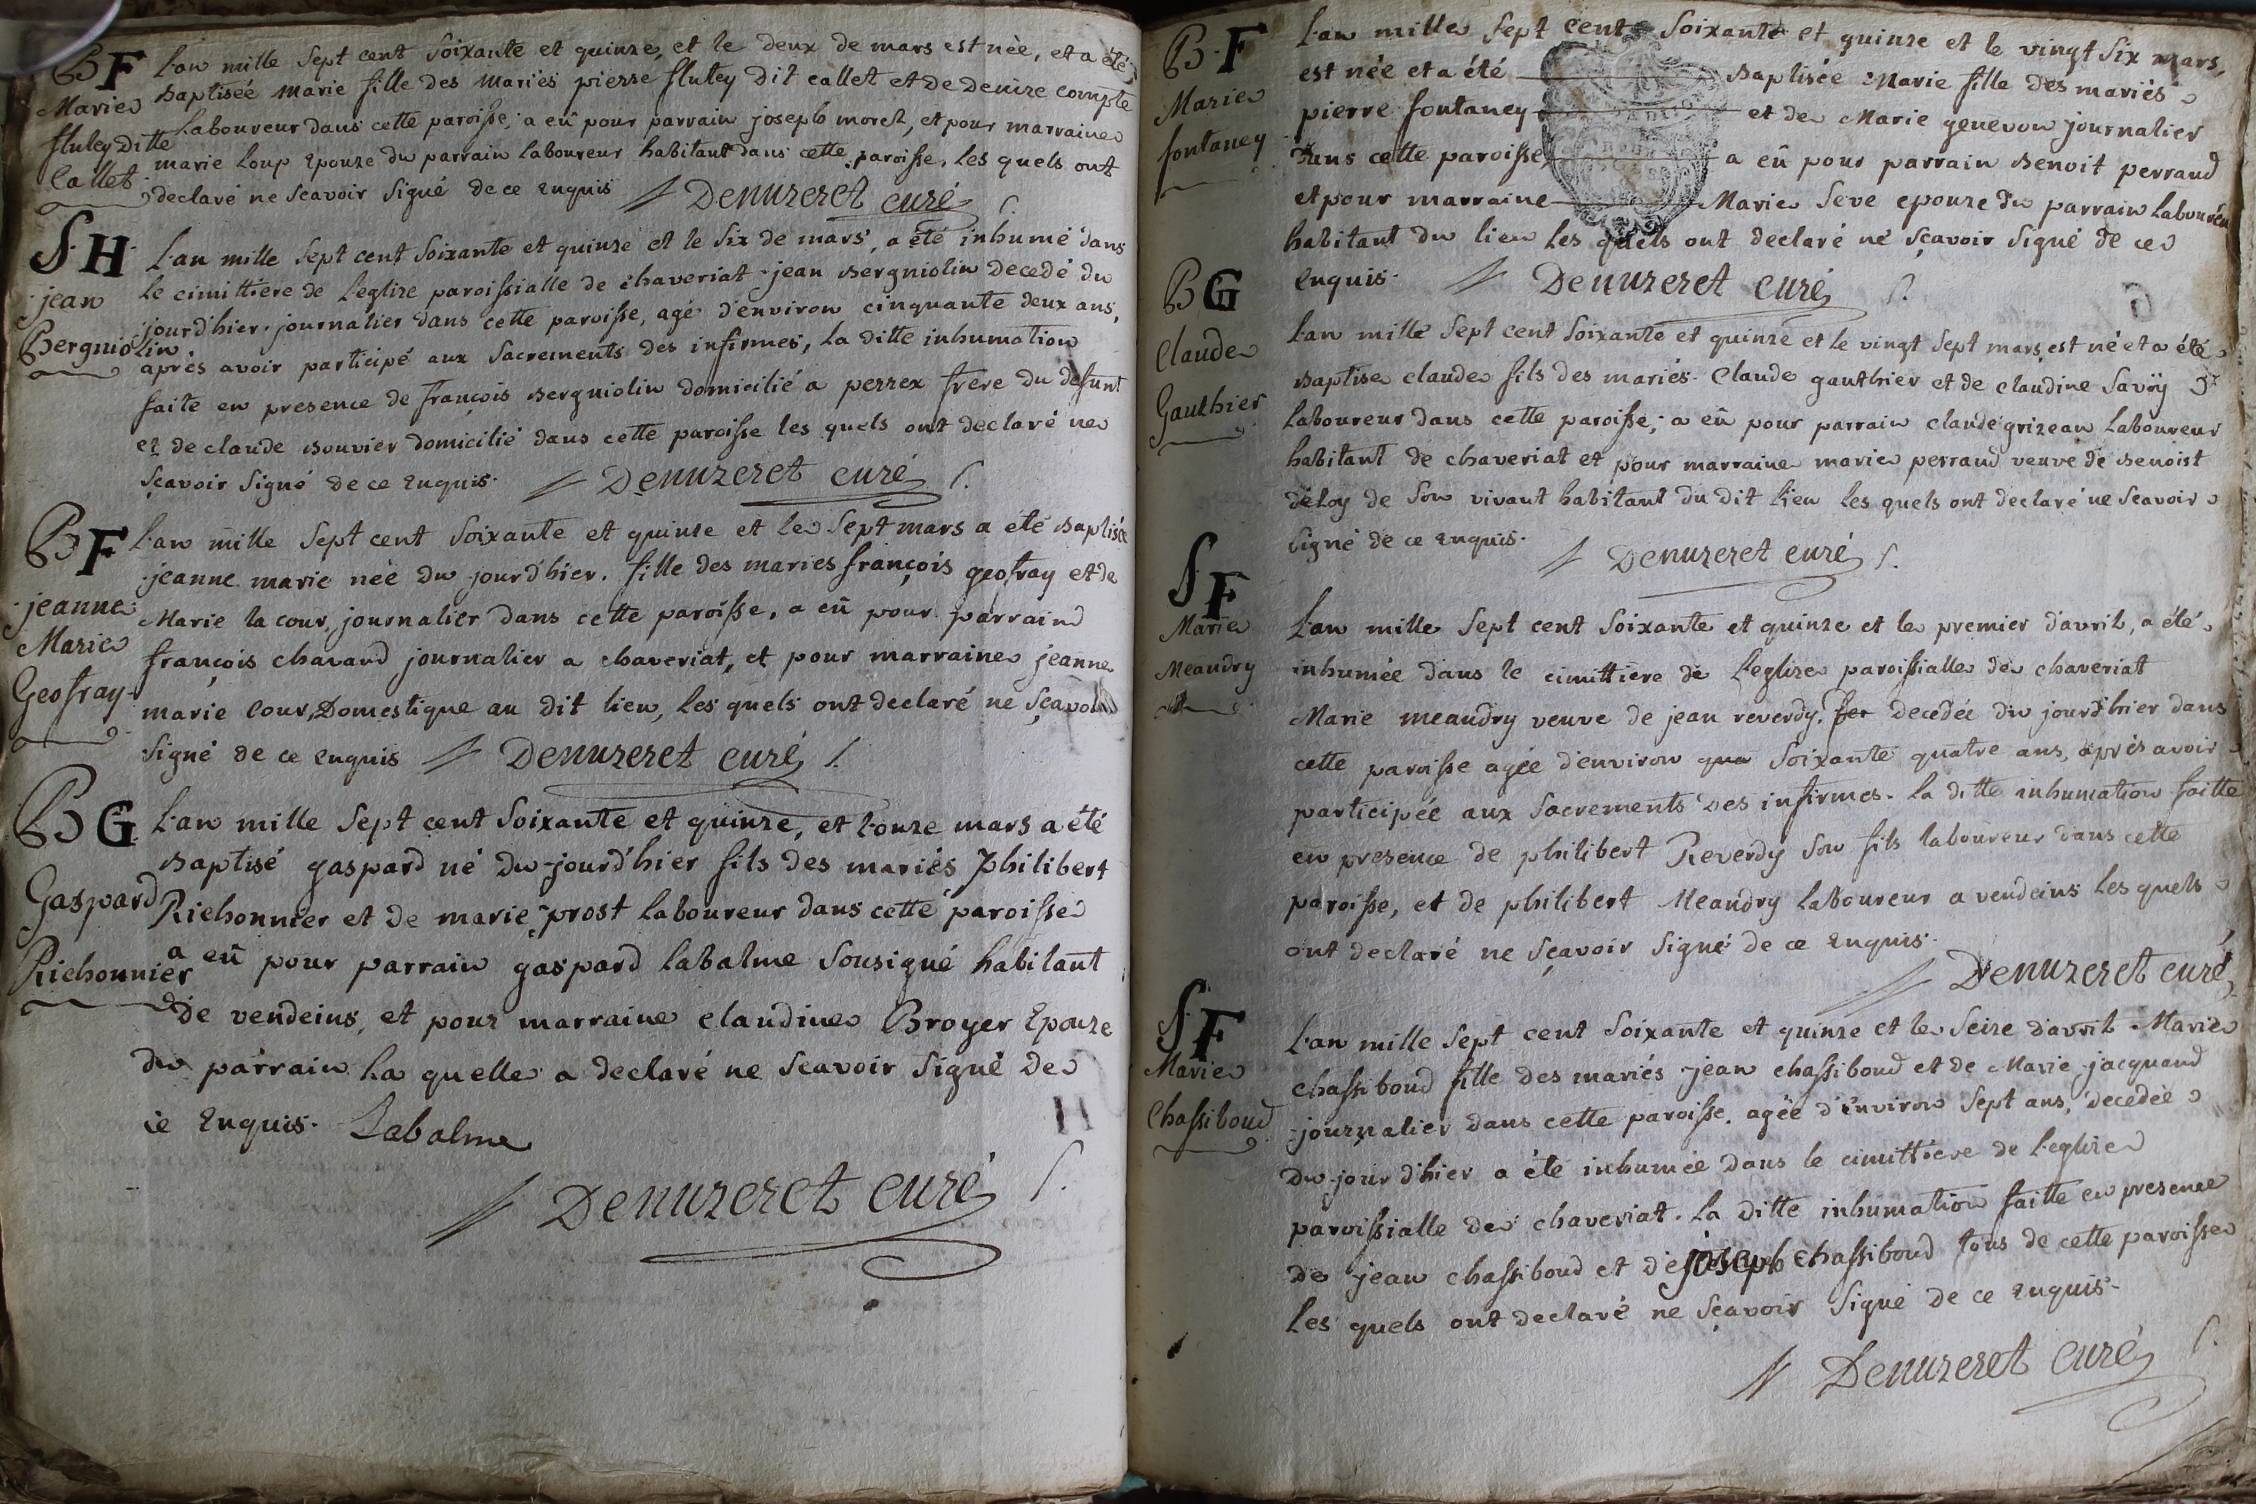 BF
Marie
fluley Ditte
Callet
L'an mille Sept cent Soixante et quinze, et le deux de mars est née, et a été
Baptiséé Marie fille des Mariés pierre fluley dit callet et de denize compte
Laboureur dans cette paroisse, a eû pour parrain joseph morel, et pour marraine
marie Loup Epouze du parrain laboureur habitant dans cette paroisse, les quels ont
declaré ne Scavoir Signé de ce Enquis Denuzeret curé
SH
jean
Bergniolin
L'an mille Sept cent Soixante et quinze et le Six de mars, a été inhumé dans
le cimittiere de l'eglize paroissialle de chaveriat jean Bergniolin decedé du
jourd'hier. journalier dans cette paroisse, agé d'environ cinquante deux ans,
après avoir participé aux Sacrements des infirmes, la ditte inhumation
faite en presence de françois Bergniolin domicilié a perrex frere du defunt
et de claude Bouvier domicilié dans cette paroisse les quels ont declaré ne
Sçavoir Signé de ce Enquis. Denuzeret curé
BF
jeanne
Marie
Geofray
L'an mille Sept cent Soixante et quinze et le Sept mars a été Baptisée
jeanne marie née du jourd'hier. fille des mariés françois geofray et de
Marie la cour, journalier dans cette paroisse, a eû pour parraind
françois chavand journalier a chaveriat, et pour marraine jeanne
marie Cour, Domestique au dit lieu, les quels ont declaré ne Sçavoir
Signé de ce Enquis Denuzeret curé
BG
Gaspard
Richonnier
L'an mille Sept cent Soixante et quinze, et l'onze mars a été
Baptisé gaspard né du jourd'hier fils des mariés Philibert
Richonnier et de marie prost laboureur dans cette paroisse
a eû pour parrain gaspard labalme Sousigné habitant
de vendeins, et pour marraine claudine Broyer Epouze
du parrain la quelle a declaré ne Scavoir Signé de
ce Enquis. Labalme
Denuzeret curé
BF
Marie
fontaney
L'an mille Sept cent Soixante et quinze et le vingt Six mars,
est née et a été Baptisée Marie fille des mariés
pierre fontaney et de Marie genevon journalier
dans cette paroisse, a eû pour parrain Benoit perraud
et pour marraine Marie Seve epouze du parrain Laboureur
habitant du lieu les quels ont declaré ne Sçavoir Signé de ce
Enquis. Denuzeret curé
BG
Claude
Gauthier
L'an mille Sept cent Soixante et quinze et le vingt Sept mars, est né et a été
Baptise claude fils des mariés Claude gauthier et de claudine Savoÿ
laboureur dans cette paroisse, a eû pour parrain claude grizeau Laboureur
habitant de chaveriat et pour marraine marie perraud veuve de Benoist
déloy de Son vivant habitant du dit lieu les quels ont declaré ne Scavoir
Signé de ce Enquis. Denuzeret curé
SF
Marie
Meandry
L'an mille Sept cent Soixante et quinze et le premier d'avril, a été
inhumée dans le cimittiere de l'eglize paroissialle de chaveriat
Marie meandry veuve de jean reverdy. decedée du jourd'hier dans
cette paroisse agée d'environ qua Soixante quatre ans, après avoir
participée aux Sacrements des infirmes. la ditte inhumation faitte
en presence de philibert Reverdy Son fils laboureur dans cette
paroisse, et de philibert Meandry laboureur a vendeins les quels
ont declaré ne Sçavoir Signé de ce Enquis.
Denuzeret curé
SF
Marie
Chassiboud
L'an mille Sept cent Soixante et quinze et le Seize d'avril Marie
chassiboud fille des mariés jean chassiboud et de Marie jacquand
journalier dans cette paroisse. agée d'environ Sept ans, decedée
du jour d'hier a été inhumée dans le cimittiere de l'eglize
paroissialle de chaveriat. la ditte inhumation faitte en presence
de jean chassiboud et de joseph chassiboud tous de cette paroisse
les quels ont declaré ne Sçavoir Signé de ce Enquis.
Denuzeret Curé